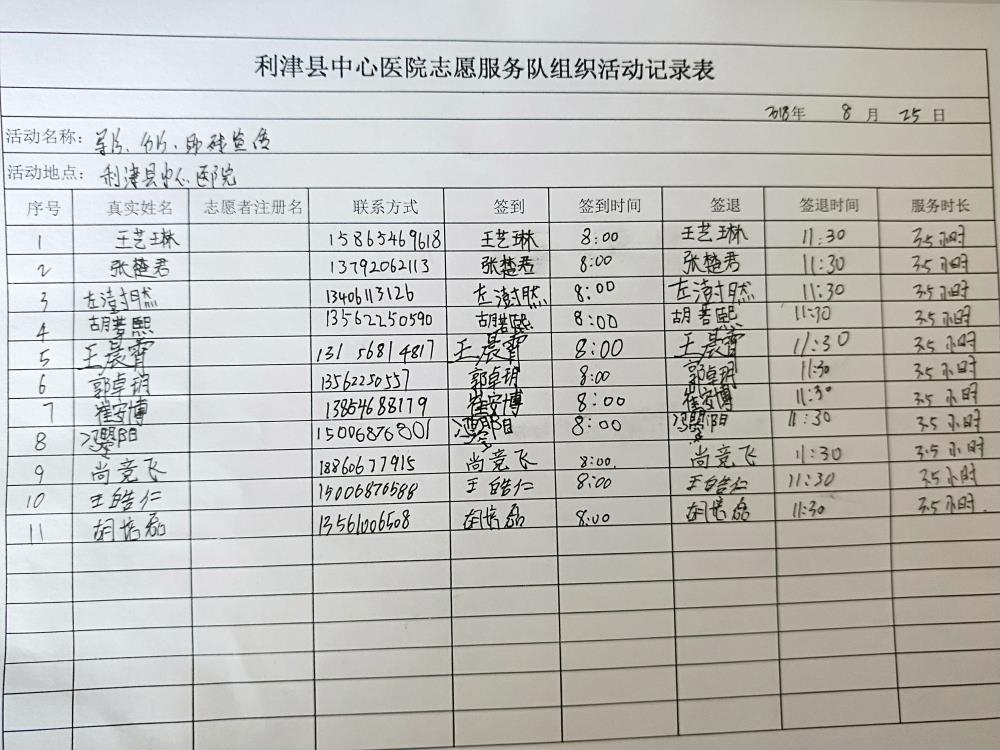 利津县中心医院志愿服务队组织活动记录表
2018年 8 月 25 日
活动名称: 导诊、分诊、
活动地点: 利津县中心医院
序号 真实姓名 志愿者注册名 联系方式 签到 签到时间 签退 签退时间 服务时长
1 王艺琳 15865469618 王艺琳 8:00 王艺琳 11:30 3.5小时
2 张楚君 13792062113 张楚君 8:00 张楚君 11:30 3.5小时
3 左澍然 13406113126 左澍然 8:00 左澍然 11:30 3.5小时
4 胡若熙 13562250590 胡若熙 8:00 胡若熙 11:30 3.5小时
5 王晨霄 13156814817 王晨霄 8:00 王晨霄 11:30 3.5小时
6 郭卓玥 13562250557 郭卓玥 8:00 郭卓玥 11:30 3.5小时
7 崔安博 13854688179 崔安博 8:00 崔安博 11:30 3.5小时
8 15006876801 8:00 11:30 3.5小时
9 尚竞飞 18860677915 尚竞飞 8:00. 尚竞飞 11:30 3.5小时
10 王皓仁 15006876588 王皓仁 8:00 王皓仁 11:30 3.5小时
11 胡培磊 13561006508 胡培磊 8:00 胡培磊 11:30 3.5小时